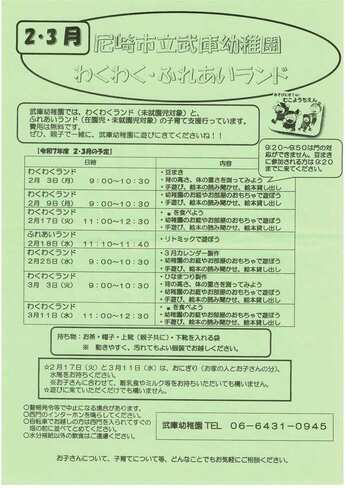 2・3月
尼崎市立武庫幼稚園
わくわく・ふれあいランド
武庫幼稚園では、わくわくランド（未就園児対象）と、
ふれあいランド（在園児・未就園児対象）の子育て支援行っています。
費用は無料です。
ぜひ、親子で一緒に、武庫幼稚園に遊びにきてくださいね！！
むこようちえん
9:20～9:50は門の対
応ができません。豆まき
に参加される方は9:20
までに来てください。
【令和7年度 2・3月の予定】
日時 内容
わくわくランド
2月 3日（月） 9：00～10：30
・豆まき
・背の高さ、体の重さを測ってみよう
・手遊び、絵本の読み聞かせ、絵本貸し出し
わくわくランド
2月 9日（月） 9：00～10：30
・幼稚園のお庭やお部屋のおもちゃで遊ぼう
・手遊び、絵本の読み聞かせ、絵本貸し出し
わくわくランド
2月17日（火） 11：00～12：30
・を食べよう
・幼稚園のお庭やお部屋のおもちゃで遊ぼう
・手遊び、絵本の読み聞かせ、絵本貸し出し
ふれあいランド
2月18日（水） 11：10～11：40
・リトミックで遊ぼう
わくわくランド
2月25日（水） 9：00～10：30
・3月カレンダー製作
・幼稚園のお庭やお部屋のおもちゃで遊ぼう
・手遊び、絵本の読み聞かせ、絵本貸し出し
わくわくランド
3月 3日（火） 9：00～10：30
・ひなまつり製作
・背の高さ、体の重さを測ってみよう
・手遊び、絵本の読み聞かせ、絵本貸し出し
わくわくランド
3月11日（水） 11：00～12：30
・を食べよう
・幼稚園のお庭やお部屋のおもちゃで遊ぼう
・手遊び、絵本の読み聞かせ、絵本貸し出し
持ち物：お茶・帽子・上靴（親子共に）・下靴を入れる袋
※ 動きやすく、汚れてもよい服装でお越しください。
☆2月17日（火）と3月11日（水）は、おにぎり（お家の人とお子さんの分）、
水筒をお持ちください。
※お子さんに合わせて、離乳食やミルク等をお持ちいただいても構いません。
☆遊びに来ていただくだけでも構いません。
○警報発令等で中止になる場合があります。
○西門のインターホンを鳴らしてください。
○自転車でお越しの方は西門を入られてすぐの
塀の前に並べてとめてください。
○水分補給以外の飲食はご遠慮ください。
武庫幼稚園 TEL 06-6431-0945
お子さんについて、子育てについて等、どんなことでもお気軽にご相談ください。